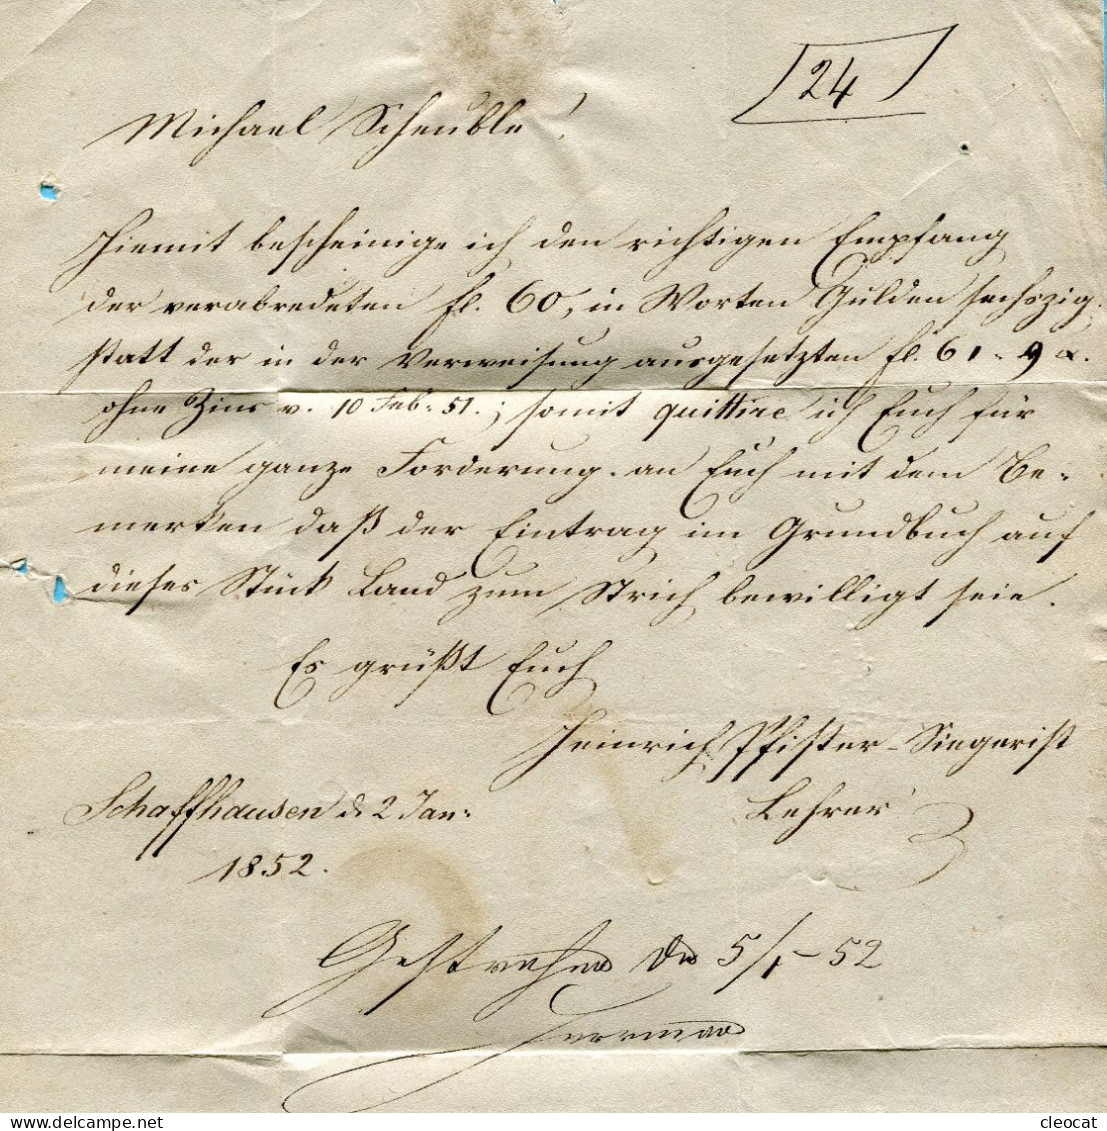 24
Michael Scheuble!
Hiemit bescheinige ich den richtigen Empfang
der verabredeten fl. 60, in Worten Gulden sechszig
statt der in der Verweisung ausgesetzten fl. 61 - 9 x.
ohne Zins v. 10 Feb: 51.; somit quittire ich Euch für
meine ganze Forderung an Euch mit dem Be-
merken daß der Eintrag im Grundbuch auf
dieses Stück Land zum Strich bewilligt seie.
Es grüßt Euch
Heinrich Pfister-Siegerist
Schaffhausen d. 2 Jan:
Lehrer
1852.
Gestrichen d. 5/1 - 52
cleocat